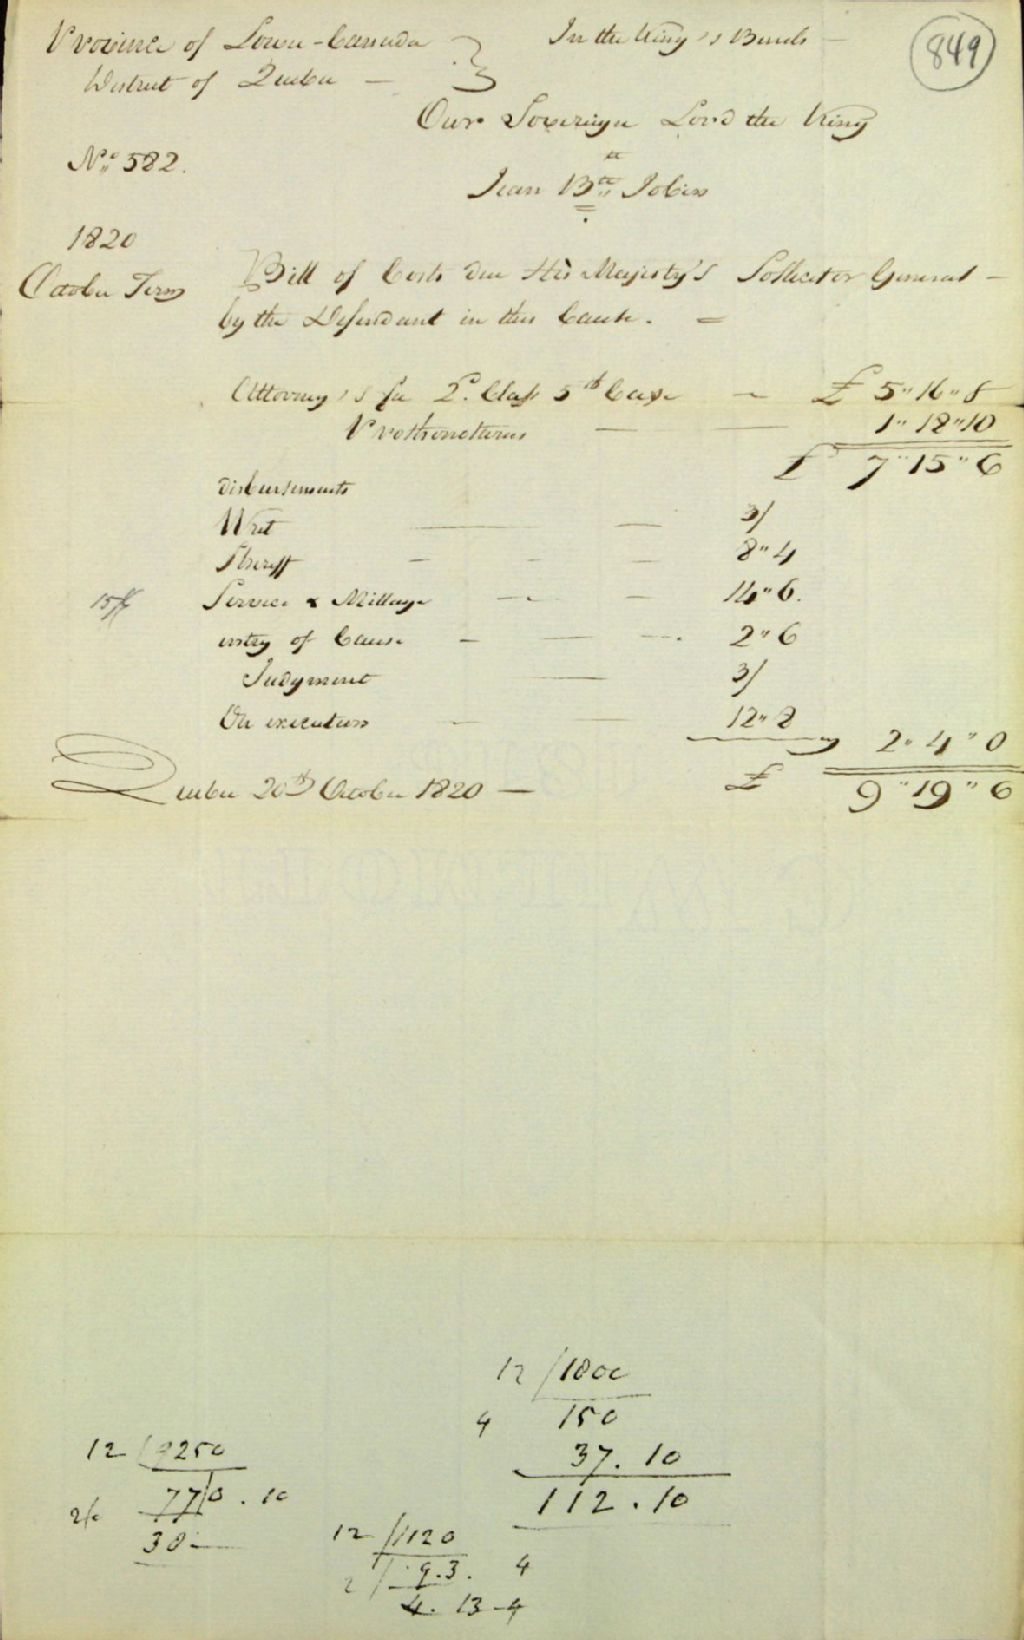 849
Province of Lower-Canada } In the King's Bench —
District of Quebec —
Our Sovereign Lord the King
No. 582.
Jean Bte Jobin
1820
October Term Bill of Costs due His Majesty's Sollicitor General —
by the Defendant in this Cause. =
Attorney's fee 2d. Class 5th Case — £ 5" 16" 8
Prothonotaries — — 1" 18" 10
£ 7" 15" 6
disbursements
Writ — — 3/
Sheriff — — — 8" 4
Service & Millage — — 14" 6.
entry of Cause — — — 2" 6
Judgment — 3/
On execution — — 12" 8
2" 4" 0
Quebec 20th October 1820 — £ 9" 19" 6
12 /1800
4 150
37. 10
112. 10
12 /9250
2/0 77/0. 10
38
12 /1120
2 / 9.3. 4
4. 13 4